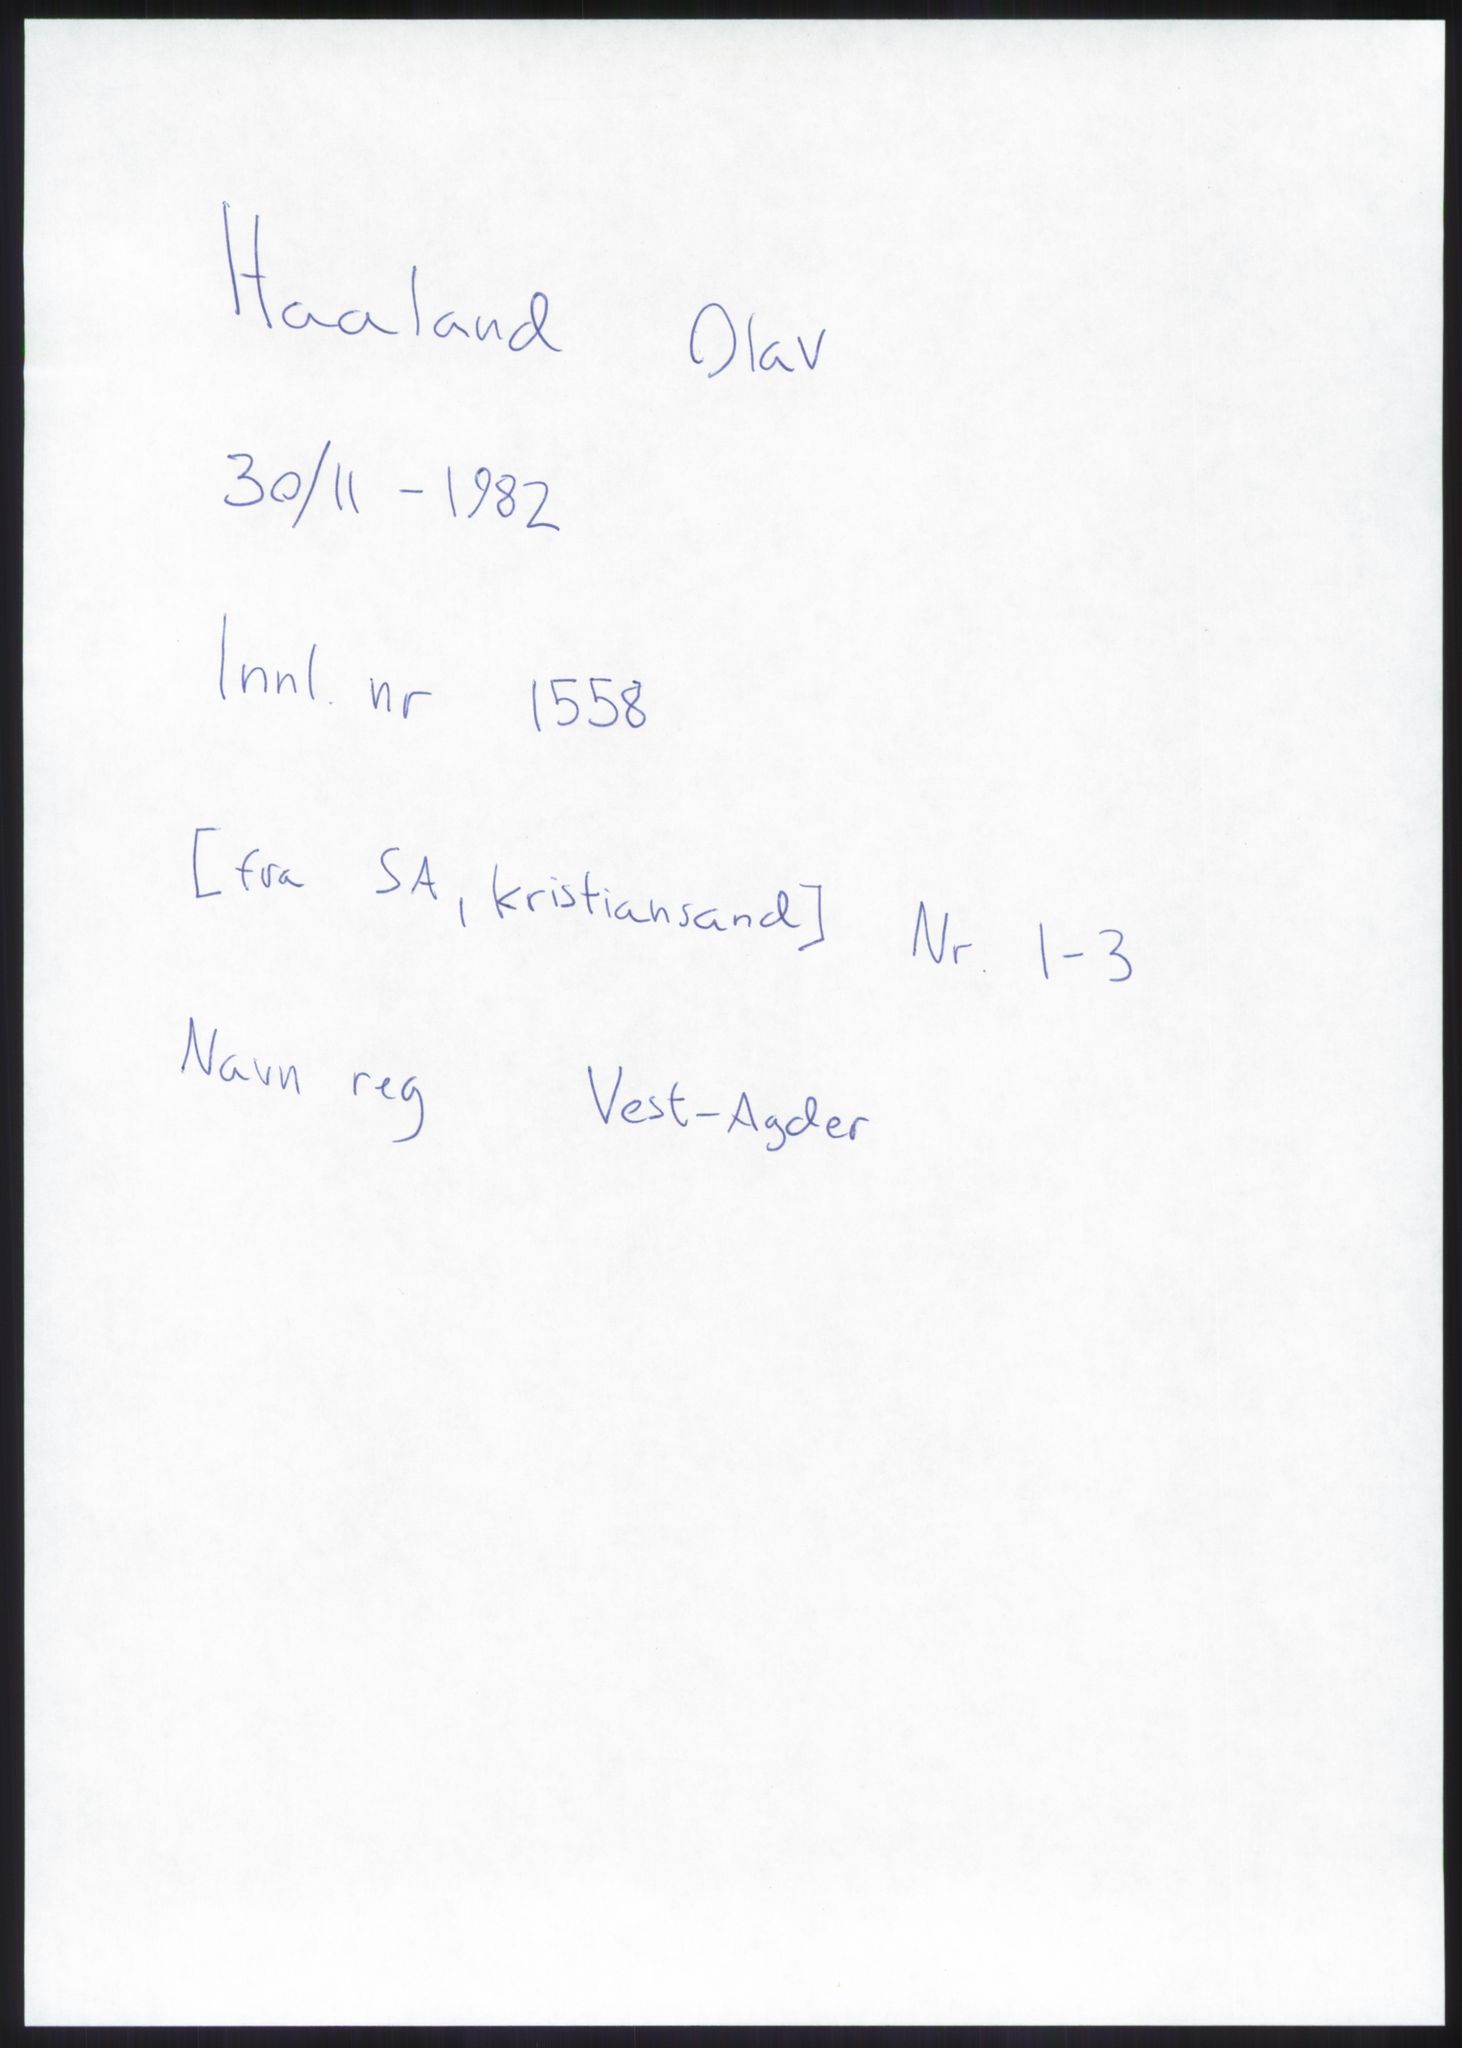 Haaland Olav
30/11 - 1982
Innl. nr 1558
[fra SA, kristiansand] Nr. 1-3
Navn reg Vest-Agder